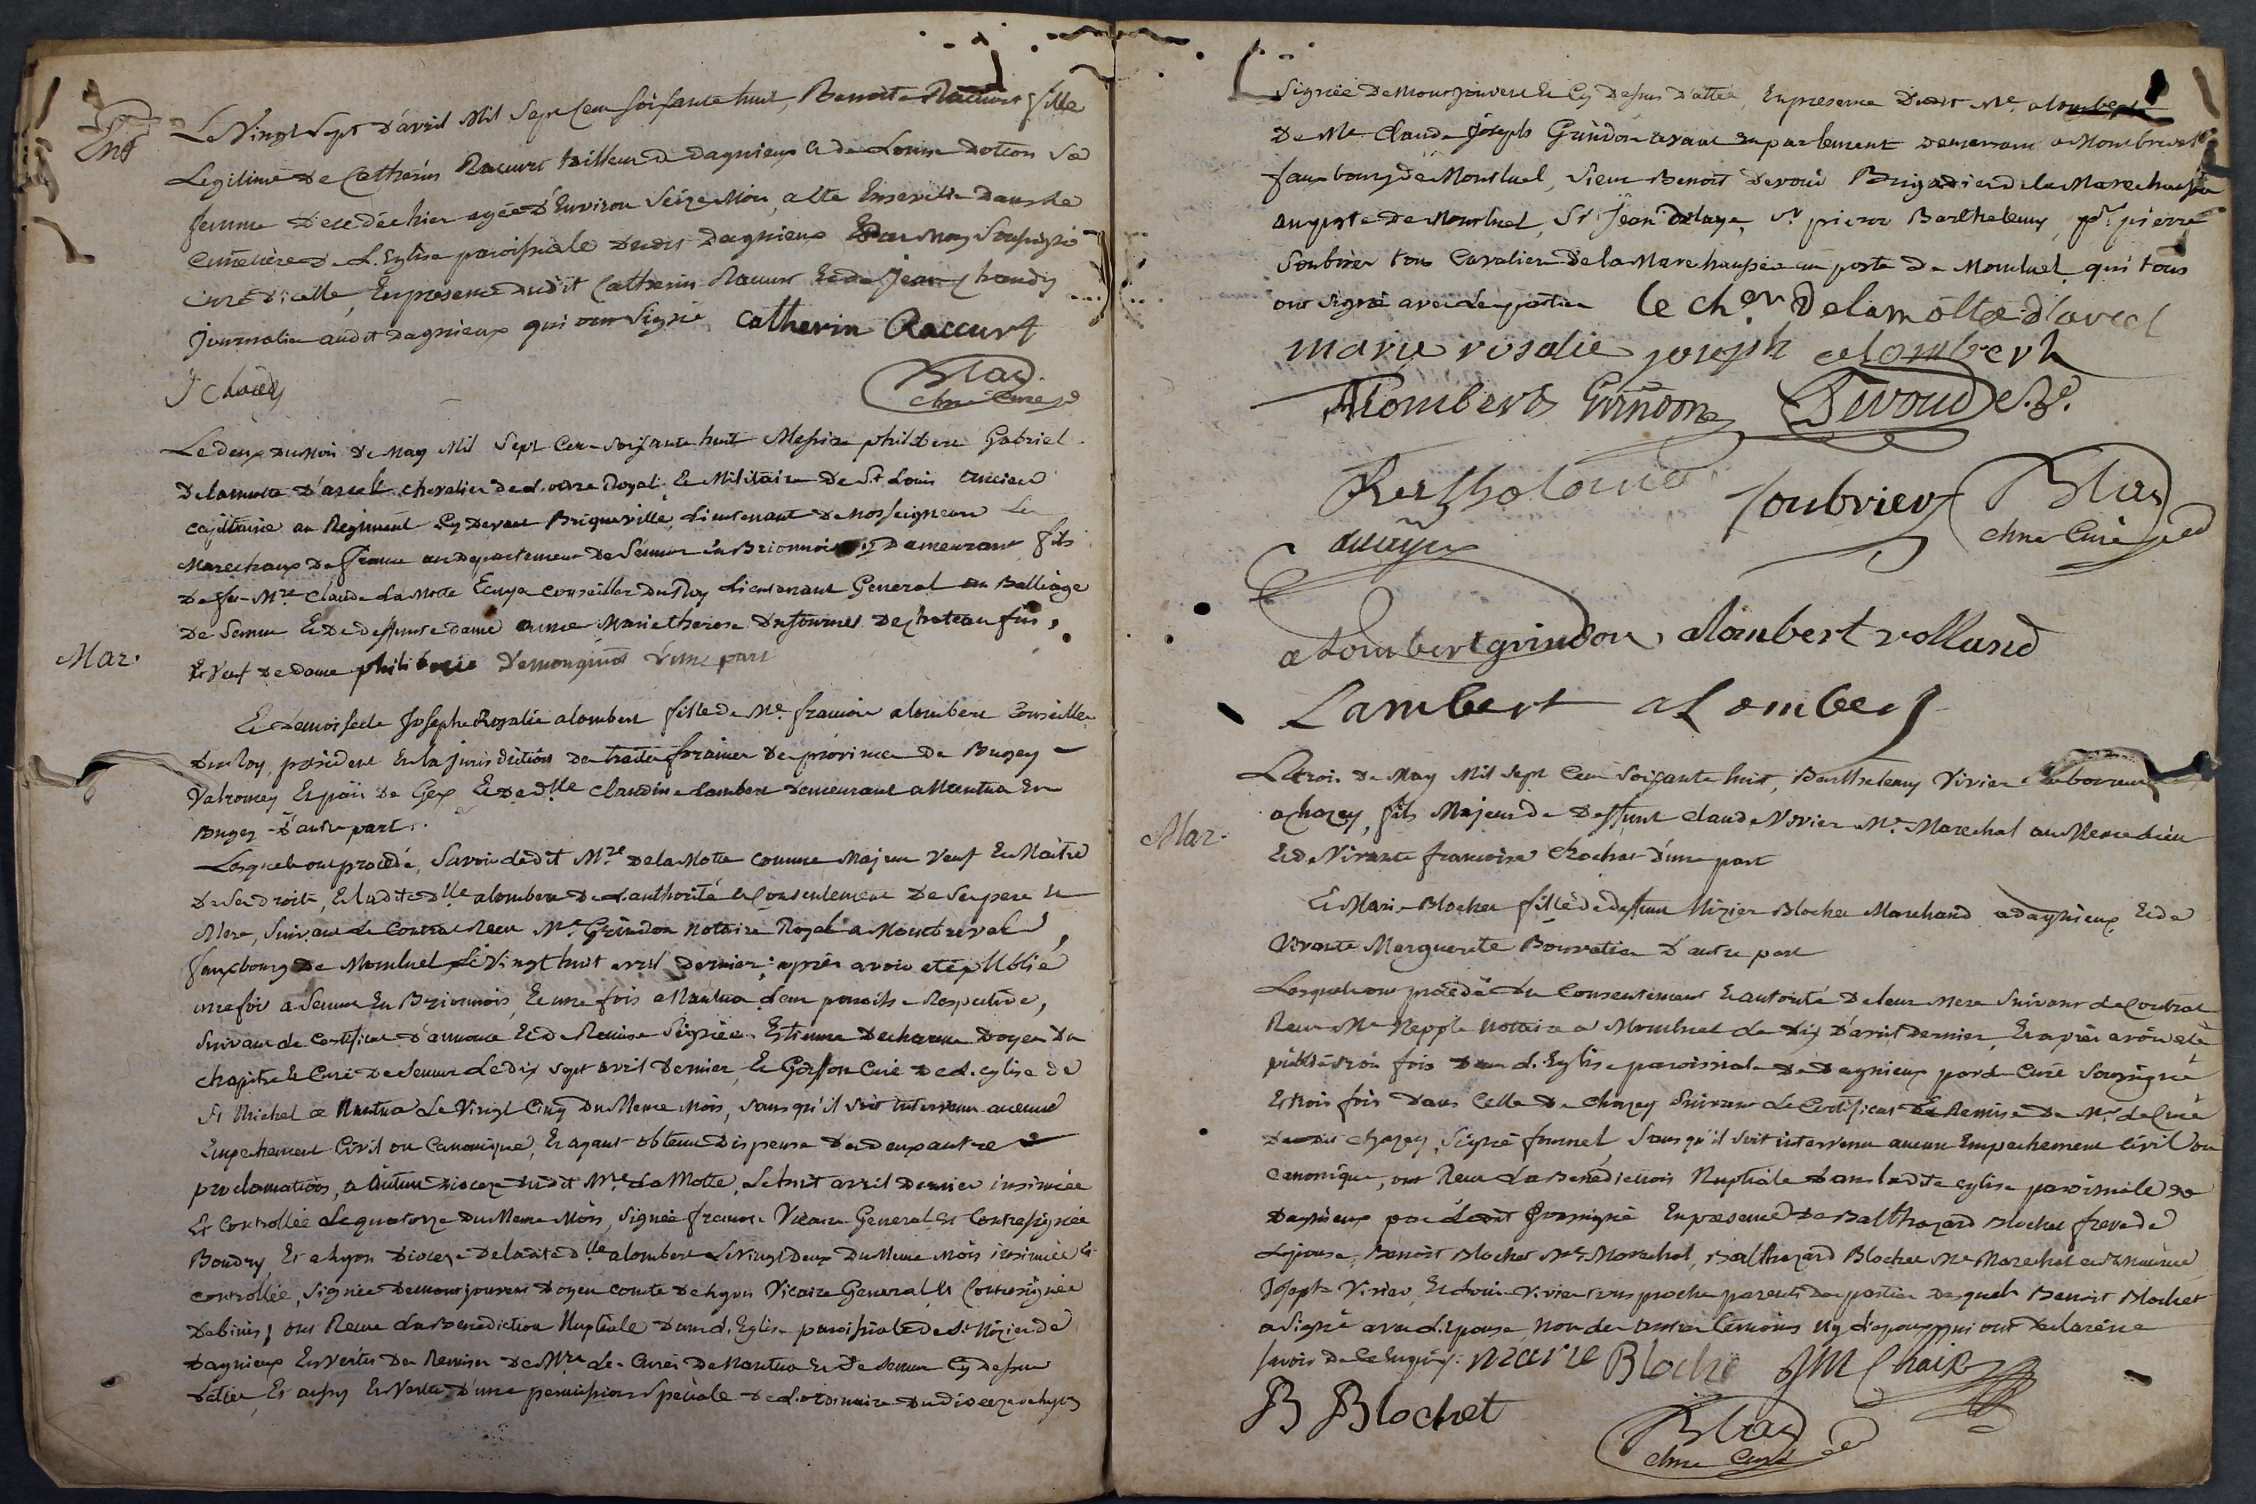 Le Vingt Sept d'avril Mil Sept Cen soixante huit, Benoite Raccurt fille
Legitime de Catherin Raccurt tailleur de dagnieux & de Louise
femme Decedée hier agée d'Environ Seize Mois, a été Ensevelie dans le
Cimetière de L. Eglise paroissiale dudit dagnieux Par Moy Soussigné
Curé d'icelle, En presence dudit Catherin Raccurt & de Jean Chaudy
journalier audit dagnieux qui ont Signé. Catherin Raccurt
J Chaudy
Blad
chne Curé
Le deux du Mois de May Mil Sept Cen soixante huit Messire philibert Gabriel
Delamotte d'arcel chevalier de L. ordre Royal & Militaire de St Louis ancien
capitaine au Regiment Cy devant Briqueville, Lieutenant de Nosseigneurs Les
Marechaux de france au departement de Semur en Brionnois y Demeurant fils
De feu Mre Claude La Motte Ecuyer Conseiller du Roy Lieutenant General au Balliage
De Semur & De deffunte dame anne Marie therese Destournes De chateaufur,
Et Veuf de Dame philiberte Demongirod d'une part
Mar.
Et Demoiselle Josephe Rozalie alombert fille de Me. francois alombert Conseiller
Du Roy, president En la jurisdiction des traites foraines Des provinces De Bugey
Valromey Et païs De Gex Et De dlle Claudine Lambert Demeurant a Nantua En
Bugey d'autre part.
Lesquels ont procedé, Savoir ledit Mre De la Motte comme Majeur Veuf Et Maitre
De Ses droits, Et ladite dlle alombert De L. authorité & Consentement De Ses pere &
Mere, Suivant Le Contrat Recu Me. Grindon Notaire Royal a Montbreval
fauxbourg De Montluel Le Vingt huit avril dernier: après avoir eté publié
une fois a Semur En Brionnois, Et une fois a Nantua Leur paroisse Respective,
Suivant les Certificats d'annonce Et de Remise Signées Estienne Decharme Doyen Du
chapitre & Curé De Semur Le dix sept avril Dernier, & Curé De L. eglise de
St Michel de Nantua Le Vingt Cinq Du Meme Mois, Sans qu'il Soit intervenu aucune
Empechement Civil ou Canonique, Et ayant obtenu Dispense Des deux autres
proclamations, a autun Dioceze dudit Mre La Motte, Le huit avril Dernier insinuée
Et Controllée Le quatorze Du Meme Mois, Signée Vicaire General, & Contresignée
Boudry, Et a Lyon Dioceze De ladite dlle alombert Le Vingt Deux Du Meme Mois insinuée &
controllée, Signée Demontjouvent Doyen Comte De Lyon Vicaire General, & Contresignée
ont Recue La Benediction Nuptiale Dans L. Eglise paroissiale de St Nizier de
Dagnieux En Vertu Des Remises De Mrs Les Curés De Nantua Et De Semur Cy dessus
datées, Et aussy En Vertu d'une permission Speciale De L. ordinaire Du dioceze de Lyon
Signée Demontjouvent & Cy Dessus Dattée, En presence Dudit Me. alombert
De Me Claude Joseph Grindon avocat en parlement Demeurant a Montbreval
faux bourg de Montluel, Sieur Benoit Devoud Brigadier de la Marechaussée
auposte de Montluel, Sr Jean Delaye, Sr pierre Barthelemy, Sr. pierre
Soubrier tous Cavaliers De la Marechaussée au poste De Montluel, qui tous
ont Signé avec Les parties le ch.er Delamotte d'arcel
marie rosalie joseph alombert
Alombert Grindon Devoud
Bartholomé
Soubrier Blad
chne Curé
alombert grindon alombert rolland
Lambert alombert
Le trois De May Mil Sept Cen Soixante huit, Barthelemy Vivier Laboureur
a chazey, fils Majeur de Deffunt Claude Vivier Me. Marechal au Meme Lieu
Mar.
Et de Vivante francoise Crochat d'une part
Et Marie Blochet fille de deffunt Nizier Blochet Marchand a dagnieux, Et de
Vivante Marguerite Bouvatier d'autre part
Lesquels ont procedé du Consentement & autorité De leurs Mere Suivant Le Contrat
Recu Me Neppple Notaire a Montluel Le Dix d'avril Dernier Et après avoir eté
publié trois fois Dans L. Eglise paroissiale De Dagnieux par Le Curé Soussigné
Et trois fois Dans Celle De chazey Suivant Le Certificat De Remise De Mr. Le Curé
Dudit chazey, Signé fournel, Sans qu'il Soit intervenu aucun Empechement Civil ou
Canonique, ont Recu La Benediction Nuptiale Dans ladite eglise paroissiale de
Dagnieux par ledit Soussigné En presence De Balthazard Blochet frere de
L'epouse, Benoit Blochet Me Marechal, Balthazard Blochet Me Marechal
Joseph Vivier, Vivier tous proches parents Des parties Desquels Benoit Blochet
a Signé avec L'epouse, Non les autres témoins Ny L'epoux, qui ont Declaré ne
Savoir De Ce Enquis. Marie Bloche JM Chaix
B Blochet
Blad
chne Curé